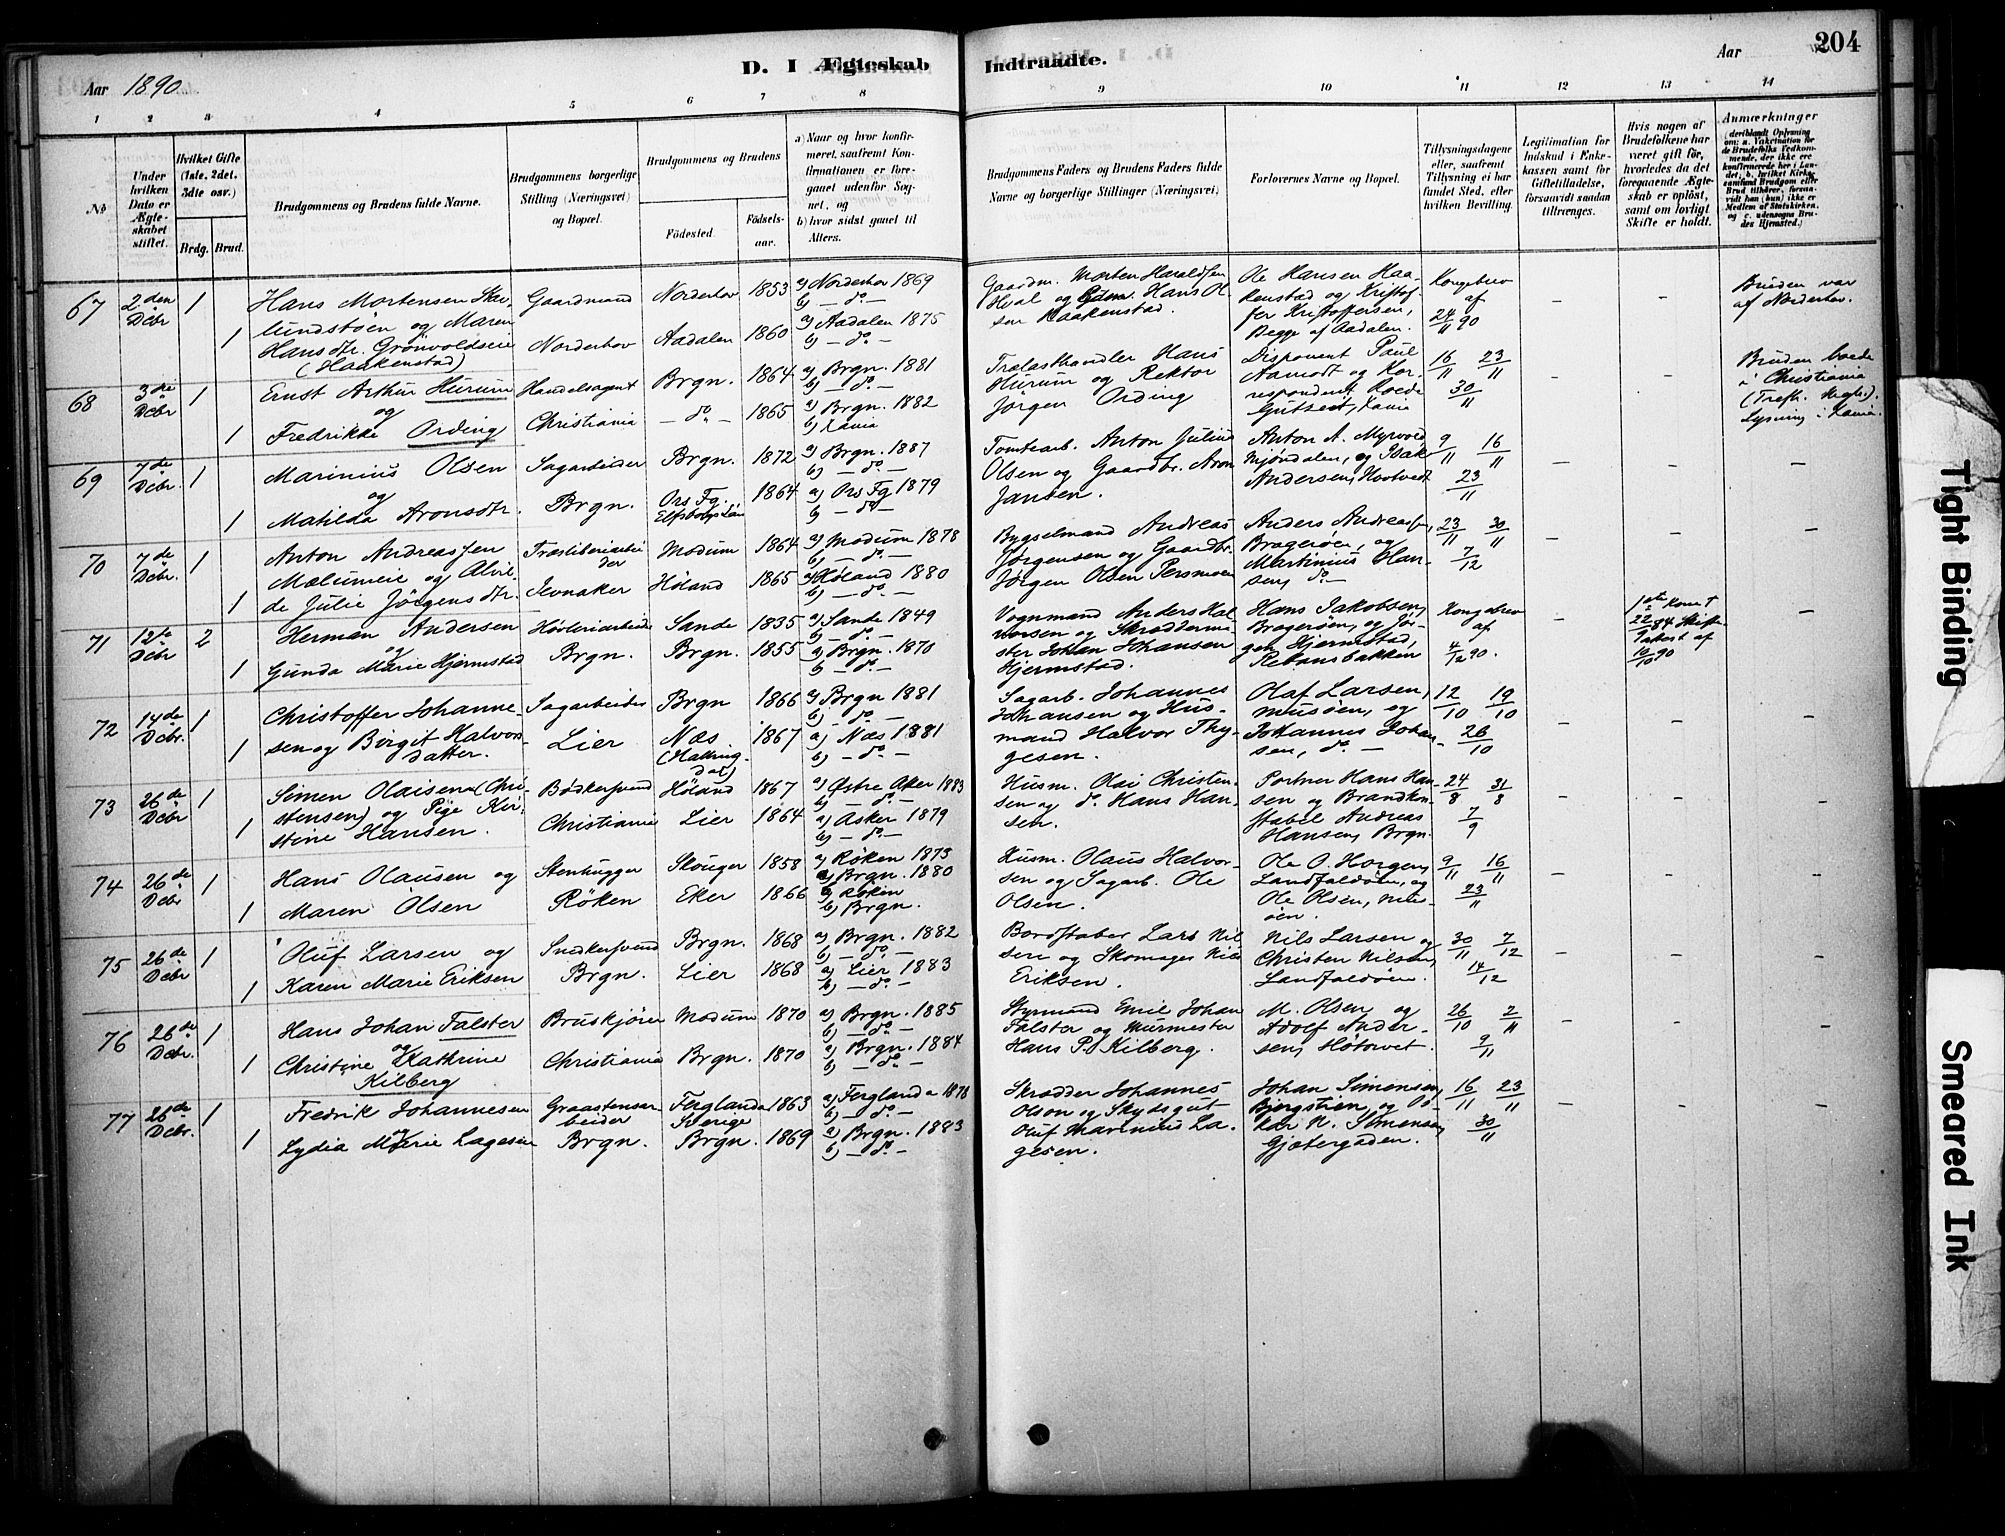 204
D. I Ægteskab Indtraadte.
Aar 1890
Aar
1 2 3 4 5 6 7 8 9 10 11 12 13 14
No
Under hvilken Dato er Ægteskabet stiftet.
Hvilket Gifte (1ste, 2det, 3die osv.)
Brdg. Brud.
Brudgommens og Brudens fulde Navne.
Brudgommens borgerlige Stilling (Næringsvei) og Bopæl.
Brudgommens og Brudens
Födested.
Födselsaar.
a) Naar og hvor konfirmeret, saafremt Konfirmationen er foregaaet udenfor Sognet, og
b) hvor sidst gaaet til Alters.
Brudgommens Faders og Brudens Faders fulde Navne og borgerlige Stillinger (Næringsvei)
Forlovernes Navne og Bopæl.
Tillysningsdagene eller, saafremt Tillysning ei har fundet Sted, efter hvilken Bevilling.
Legitimation for Indskud i Enkekassen samt for Giftetilladelse, forsaavidt saadan tiltrænges.
Hvis nogen af Brudefolkene har været gift för, hvorledes da det foregaaende Ægteskab er oplöst, samt om lovligt Skifte er holdt.
Anmærkninger
67 2den Dcbr 1
Hans Mortensen
og Maren Hansdtr. Grönvoldseie (Haakenstad)
Gaardmand
Norderhov
Norderhov 1853 a) Norderhov 1869 b) — do —
1 Aadalen 1860 a) Aadalen 1875 b) — do —
Gaardm. Morten Haraldsen Hval og Gdm. Hans Olsen Haakenstad.
Ole Hansen Haakenstad og Kristoffer Kristoffersen, Begge af Aadalen.
Kongebrev af 24/11 90
Bruden var af Norderhov.
68 3die Dcbr 1
Ernst Arthur Hurum og
1 Fredrikke Ording
Handelsagent
Christiania
Brgn. 1864 a) Brgn. 1881 b) — do —
— do — 1865 a) Brgn. 1882 b) Xania
Trælasthandler Hans Hurum og Rektor Jörgen Ording
Disponent Paul Aamodt og Korrespondent Roede Gutzeit, Xania
16/11 23/11 30/11
Bruden boede i Christiania Lysning i Xania.
69 7de Dcbr. 1
Marinius Olsen og
1 Matilda Aronsdtr.
Sagarbeider
Brgn.
Brgn. 1872 a) Brgn. 1887 b) — do —
Ors Fg. Elfsborgs Län 1864 a) Ors Fg 1879 b) — do —
Tomtearb. Anton Julius Olsen og Gaardbr. Aron Jansen.
Anton A. Myrvold, Mjöndalen, og Isak Andersen, Hootvedt
9/11 16/11 23/11
70 7de Dcbr. 1
Anton Andreassen Mælumeie og Alvilde Julie Jörgensdtr.
Træsliberiarbeider
Jevnaker
Modum 1864 a) Modum 1878 b) — do —
1 Höland 1865 a) Höland 1880 b) — do —
Bygselmand Andreas Jörgensen og Gaardbr. Jörgen Olsen Persmoen
Anders Andreassen, Bragerøen, og Martinius Hansen, do —
23/11 30/11 7/12
71 12te Dcbr 2
Herman Andersen og
1 Gunda Marie Hjermstad
Høvleriarbeider
Brgn.
Sande 1835 a) Sande 1849 b) — do —
Brgn. 1855 a) Brgn. 1870 b) — do —
Vognmand Anders Halvorsen og Skræddermester Johan Johansen Hjermstad.
Hans Jakobsen, Bragerøen, og Jörgen Hjermstad,
Kongebrev af 4/12 90.
1ste Kone † 22/2 84 Skifteattest af 10/10 90
72 14de Dcbr. 1
Christoffer Johannesen og Birgit Halvorsdatter.
Sagarbeider
Lier
Brgn 1866 a) Brgn 1881 b) — do —
1 Næs (Hallingdal) 1867 a) Næs 1881 b) — do —
Sagarb. Johannes Johansen og Husmand Halvor Thygesen.
Olaf Larsen, musøen, og Johannes Johansen, do —
12/10 19/10 26/10
73 26de Dcbr 1
Simen Olaisen (Christensen) og Pige Kirstine Hansen.
Bödkersvend
Christiania
Höland 1867 a) Østre Aker 1883 b) — do —
1 Lier 1864 a) Asker 1879 b) — do —
Husm. Olai Christensen og do. Hans Hansen.
Portner Hans Hansen og Brandkonstabel Andreas Hansen, Brgn.
24/8 31/8 7/9
74 26de Dcbr 1
Hans Olausen og
1 Maren Olsen
Stenhugger
Röken
Skouger 1858 a) Röken 1873 b) Brgn. 1880
Eker 1866 a) Röken b) Brgn.
Husm. Olaus Halvorsen og Sagarb. Ole Olsen.
Ole O. Horgen, Landfaldöen, og Ole Olsen, musöen.
9/11 16/11 23/11
75 26de Dcbr 1
Oluf Larsen og
1 Karen Marie Eriksen
Snedkersvend
Brgn.
Brgn. 1868 a) Brgn. 1882 b) — do —
Lier 1868 a) Lier 1883 b) — do —
Bordstabler Lars Nilsen og Skomager Nils Eriksen.
Nils Larsen og Christen Nilsen, Landfaldöen.
30/11 7/12 14/12
76 26de Dcbr. 1
Hans Johan Falster og
1 Christine Kathrine Kilberg
Bruskjörer
Christiania
Modum 1870 a) Brgn. 1885 b) — do —
Brgn. 1870 a) Brgn. 1884 b) — do —
Styrmand Emil Johan Falster og Murmester Hans P. Kilberg.
M. Olsen og Adolf Andersen, Hötorvet.
26/10 2/11 9/11
77 26de Dcbr. 1
Fredrik Johannesen og
1 Lydia Marie Lagesen
Graastensarbeider
Brgn.
Ferglanda Sverige 1863 a) Ferglanda 1878 b) — do —
Brgn. 1869 a) Brgn. 1883 b) — do —
Skrædder Johannes Olson og Skydsgut Oluf Marinius Lagesen.
Johan Simonsen, Bjergstien, og Oskar N. Simonsen, Gjetergaden.
16/11 23/11 30/11
Tight Binding
Smeared Ink